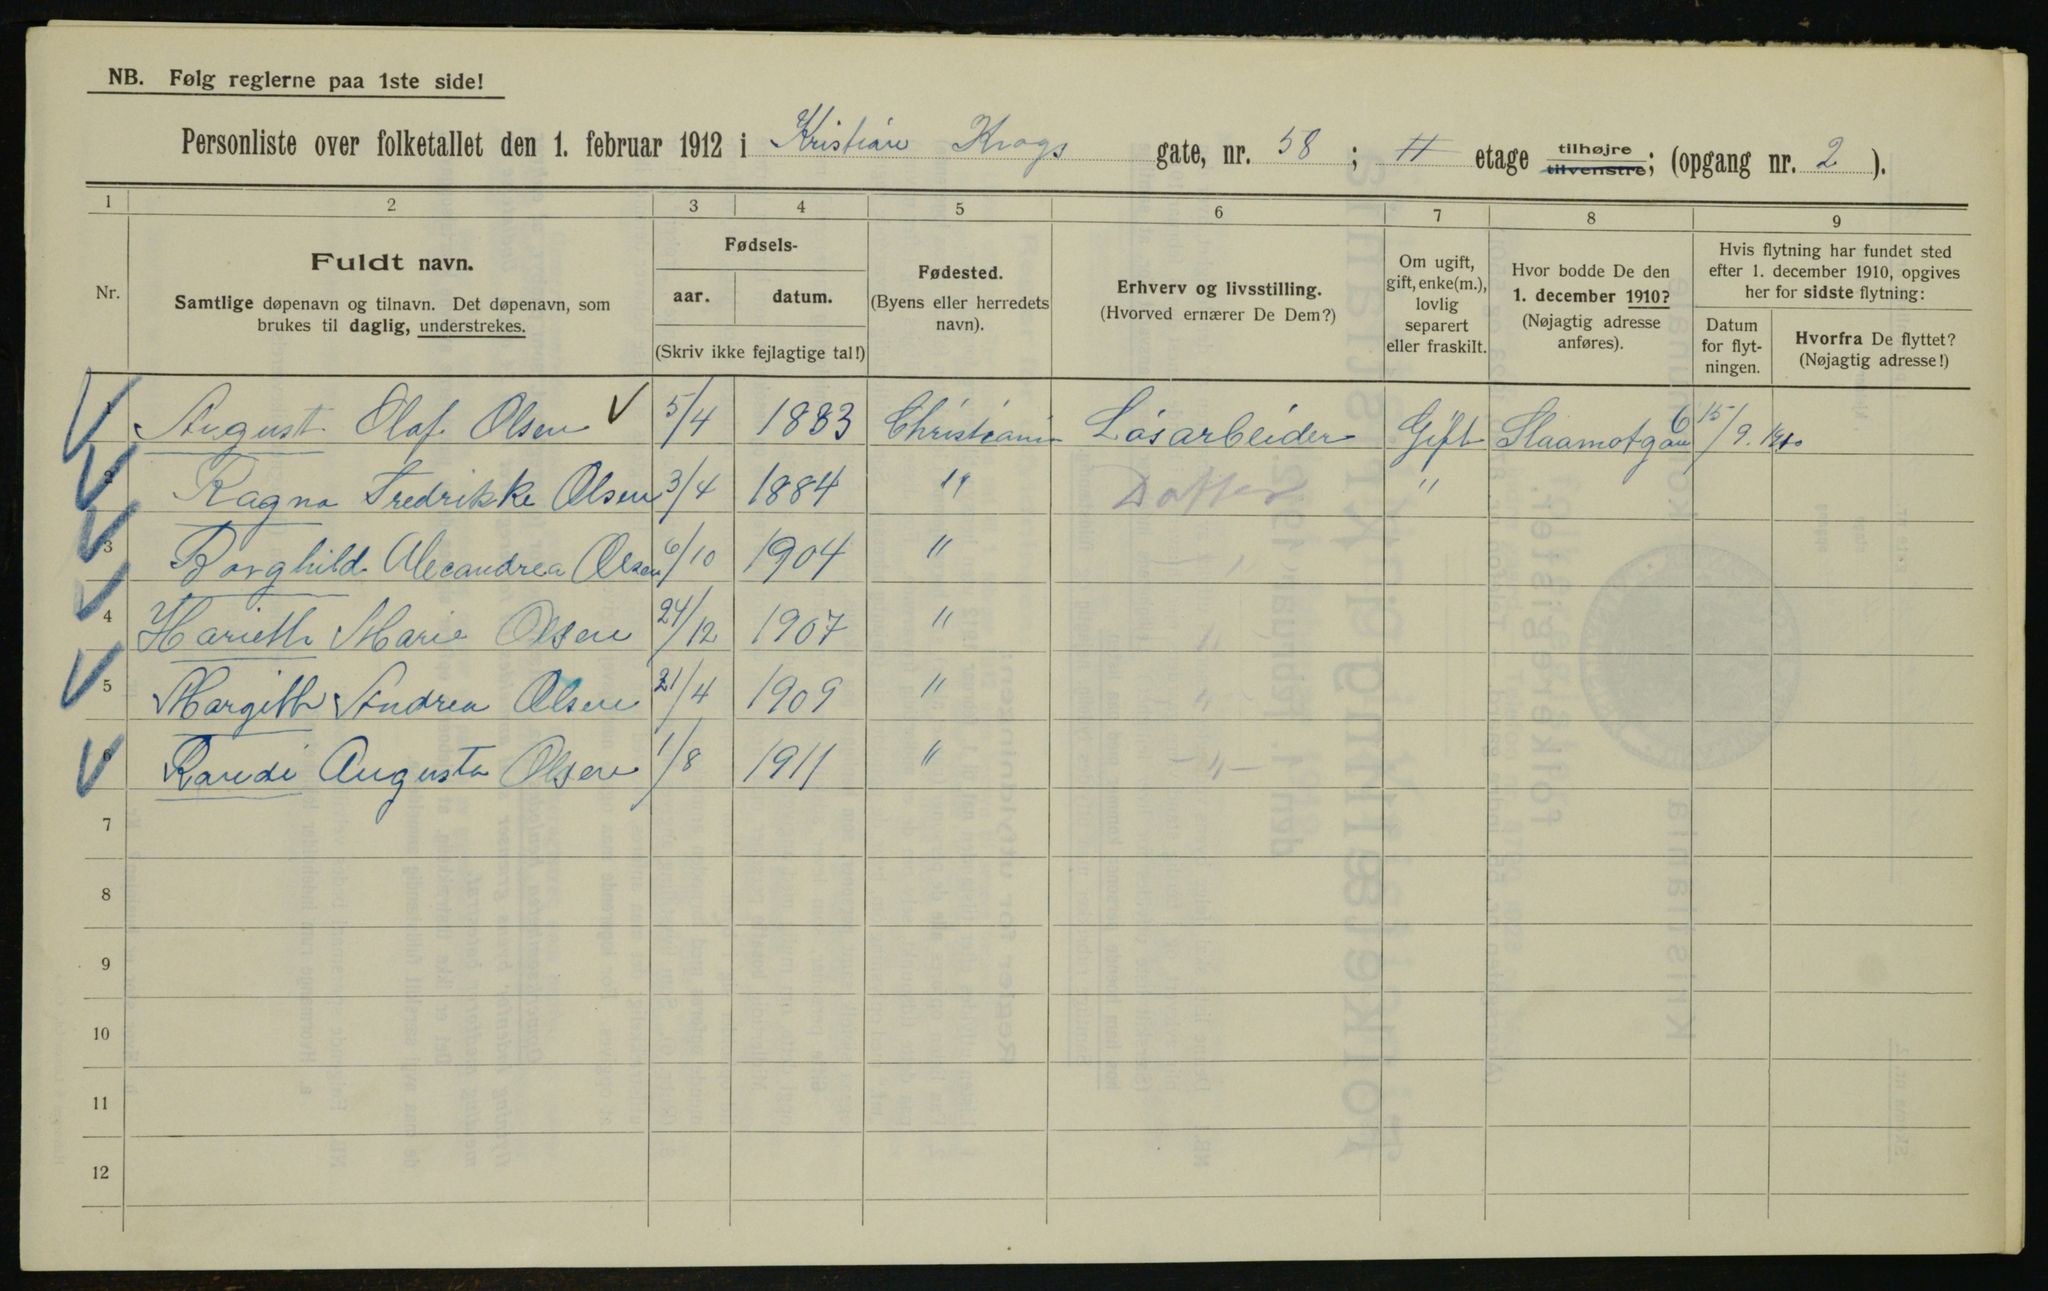 NB. Følg reglerne paa 1ste side!
Personliste over folketallet den 1. februar 1912 i Kristian Krogs gate, nr. 58 ; II etage tilhøjre tilvenstre; (opgang nr. 2 ).
1 2 3 4 5 6 7 8 9
Nr.
Fuldt navn.
Samtlige døpenavn og tilnavn. Det døpenavn, som
brukes til daglig, understrekes.
Fødsels-
aar. datum.
(Skriv ikke fejlagtige tal!)
Fødested.
(Byens eller herredets
navn).
Erhverv og livsstilling.
(Hvorved ernærer De Dem?)
Om ugift,
gift, enke(m.),
lovlig
separert
eller fraskilt.
Hvor bodde De den
1. december 1910?
(Nøjagtig adresse
anføres).
Hvis flytning har fundet sted
efter 1. december 1910, opgives
her for sidste flytning:
Datum
for flyt-
ningen.
Hvorfra De flyttet?
(Nøjagtig adresse!)
1 August Olaf Olsen 5/4 1883 Christiania Løsarbeider Gift 6 15/9. 1910
2 Ragna Fredrikke Olsen 3/4 1884 " "
3 Borghild Alecandrea Olsen 6/10 1904 "
4 Harieth Marie Olsen 24/12 1907 "
5 Margith Andrea Olsen 21/4 1909 "
6 Randi Augusta Olsen 1/8 1911 " - " -
7
8
9
10
11
12